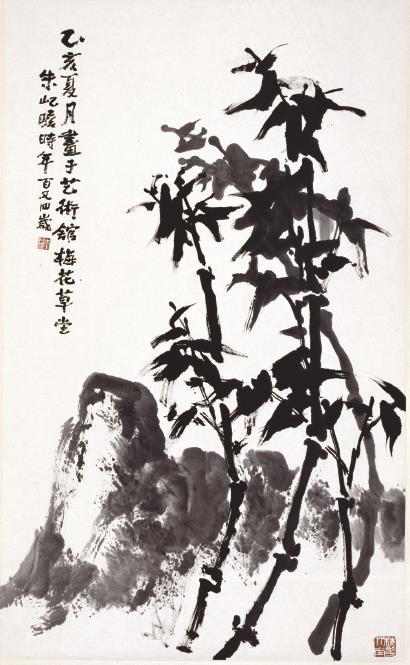 乙亥夏月畫于艺術舘梅花草堂
朱屺瞻時年百又四歲